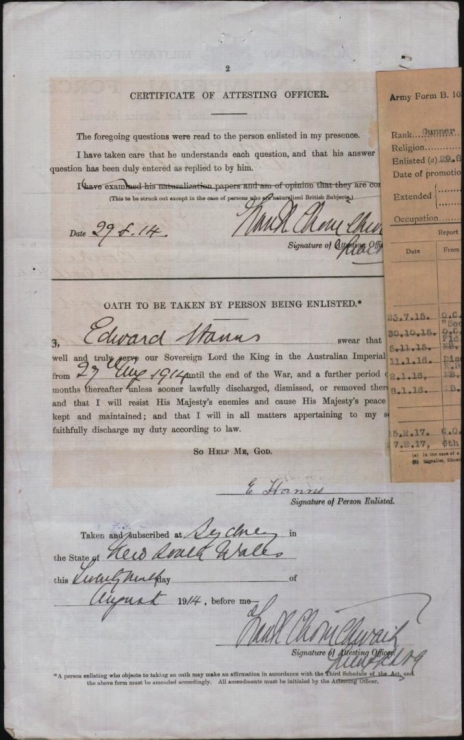 2
CERTIFICATE OF ATTESTING OFFICER.
The foregoing questions were read to the person enlisted in my presence.
I have taken care that he understands each question, and that his answer
question has been duly entered as replied to by him.
I have examined his naturalization papers and am of opinion that they are cor
(This to be struck out except in the case of persons who are naturalised British Subjects.)
Date 29.8.14.
Signature of Attesting Offi
OATH TO BE TAKEN BY PERSON BEING ENLISTED.*
3, Edward swear that
well and truly serve our Sovereign Lord the King in the Australian Imperial
from Aug 1914 until the end of the War, and a further period o
months thereafter unless sooner lawfully discharged, dismissed, or removed there
and that I will resist His Majesty's enemies and cause His Majesty's peace
kept and maintained; and that I will in all matters appertaining to my s
faithfully discharge my duty according to law.
SO HELP ME, GOD.
E
Signature of Person Enlisted.
Taken and subscribed at Sydney in
the State of New South Wales
this day of
August 1914, before me—
Signature of Attesting Officer.
*A person enlisting who objects to taking an oath may make an affirmation in accordance with the Third Schedule of the Act, and
the above form must be amended accordingly. All amendments must be initialed by the Attesting Officer.
Army Form B. 10
Rank Gunner
Religion
Enlisted (a) 29.8
Date of promotio
Extended
Occupation
Report
Date From
23.7.15.
30.10.15.
5.11.15.
11.1.16.
2.1.16.
8.1.16.
15.2.17.
7.2.17. 6th